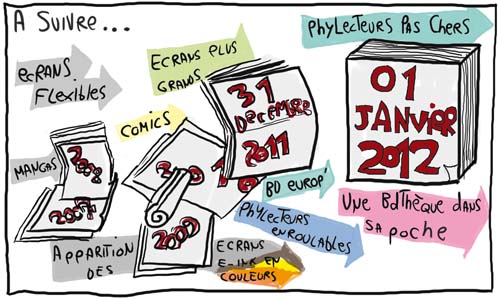 A SUIVRE...
ECRANS
FLEXIBLES
ECRANS PLUS
GRANDS
PHYLECTEURS PAS CHERS
COMICS
MANGAS
2008
2007
2009
31
Decembre
2011
01
JANVIER
2012
BD EUROP'
PHYLECTEURS
ENROULABLES
UNE BDTHÈQUE DANS
SA POCHE
APPARITION
DES
ECRANS
E-INK EN
COULEURS